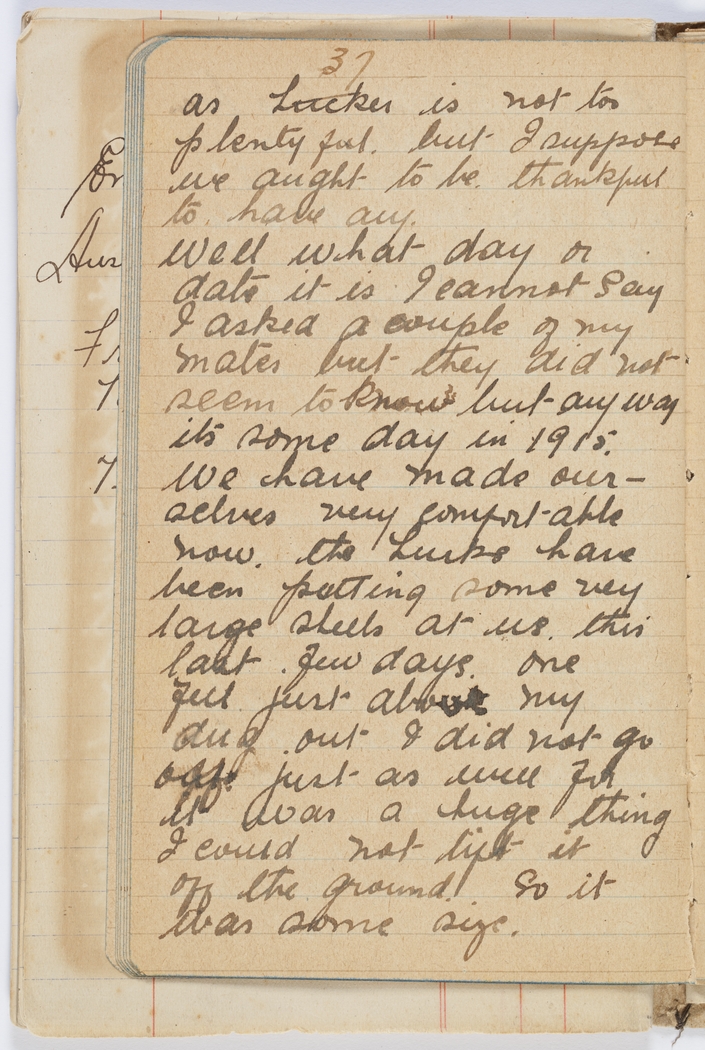 37
as tucker is not too
plentyful. but I suppose
we aught to be. thankful
to. have any.
Well what day or
date it is I cannot say
I asked a couple of my
mates but they did not
seem to know but anyway
its some day in 1915.
We have made our-
selves very comfort-able
now. the Turks have
been putting some very
large shells at us. this
last. few days. one
fell just above my
dug out I did not go
off. just as well for
it was a huge thing
I could not lift it
off the ground. So it
was some size.